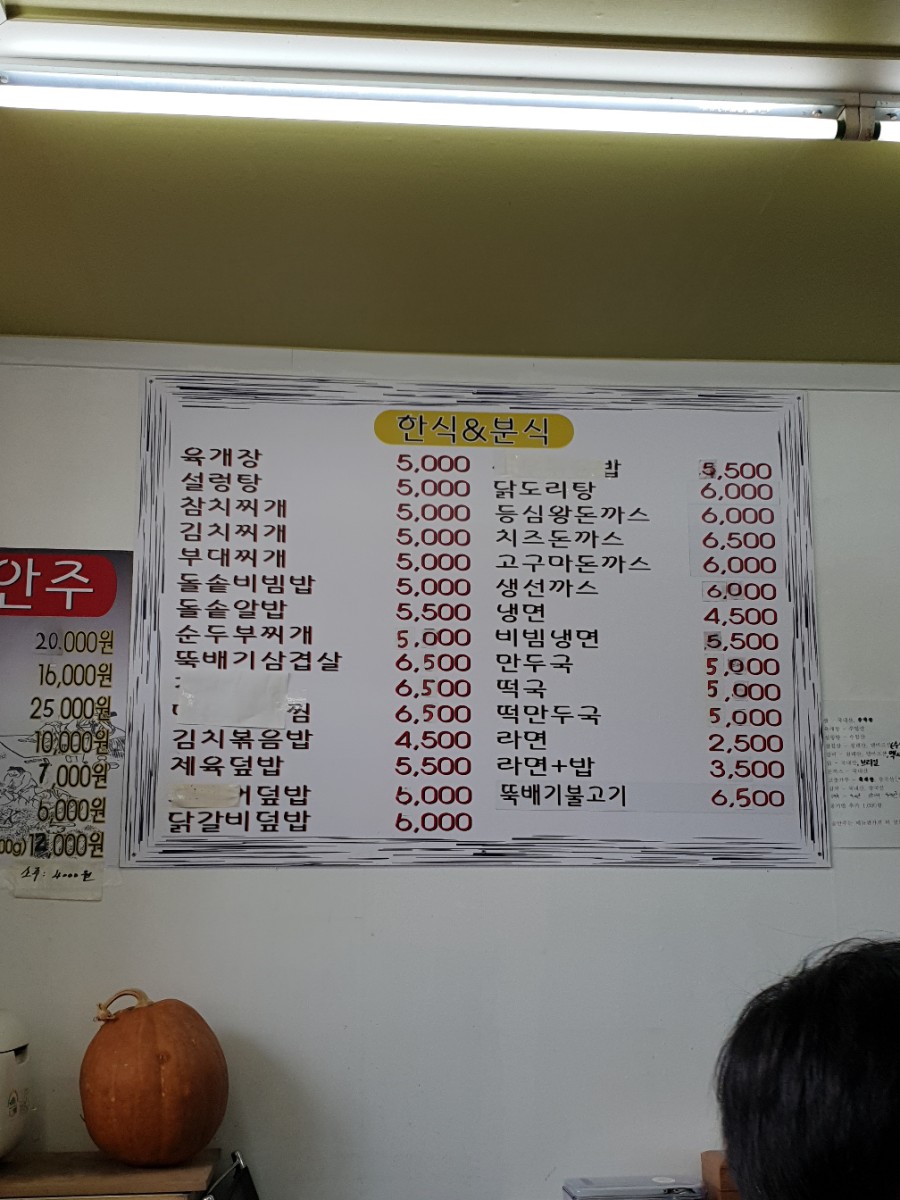 한식&분식
육개장 5,000
설렁탕 5,000
참치찌개 5,000
김치찌개 5,000
부대찌개 5,000
돌솥비빔밥 5,000
돌솥알밥 5,500
순두부찌개 5,000
뚝배기삼겹살 6,500
6,500
찜 6,500
김치볶음밥 4,500
제육덮밥 5,500
덮밥 6,000
닭갈비덮밥 6,000
밥 5,500
닭도리탕 6,000
등심왕돈까스 6,000
치즈돈까스 6,500
고구마돈까스 6,000
생선까스 6,000
냉면 4,500
비빔냉면 5,500
만두국 5,000
떡국 5,000
떡만두국 5,000
라면 2,500
라면+밥 3,500
뚝배기불고기 6,500
안주
20,000원
16,000원
25,000원
10,000원
7,000원
6,000원
000원
소주: 4000원